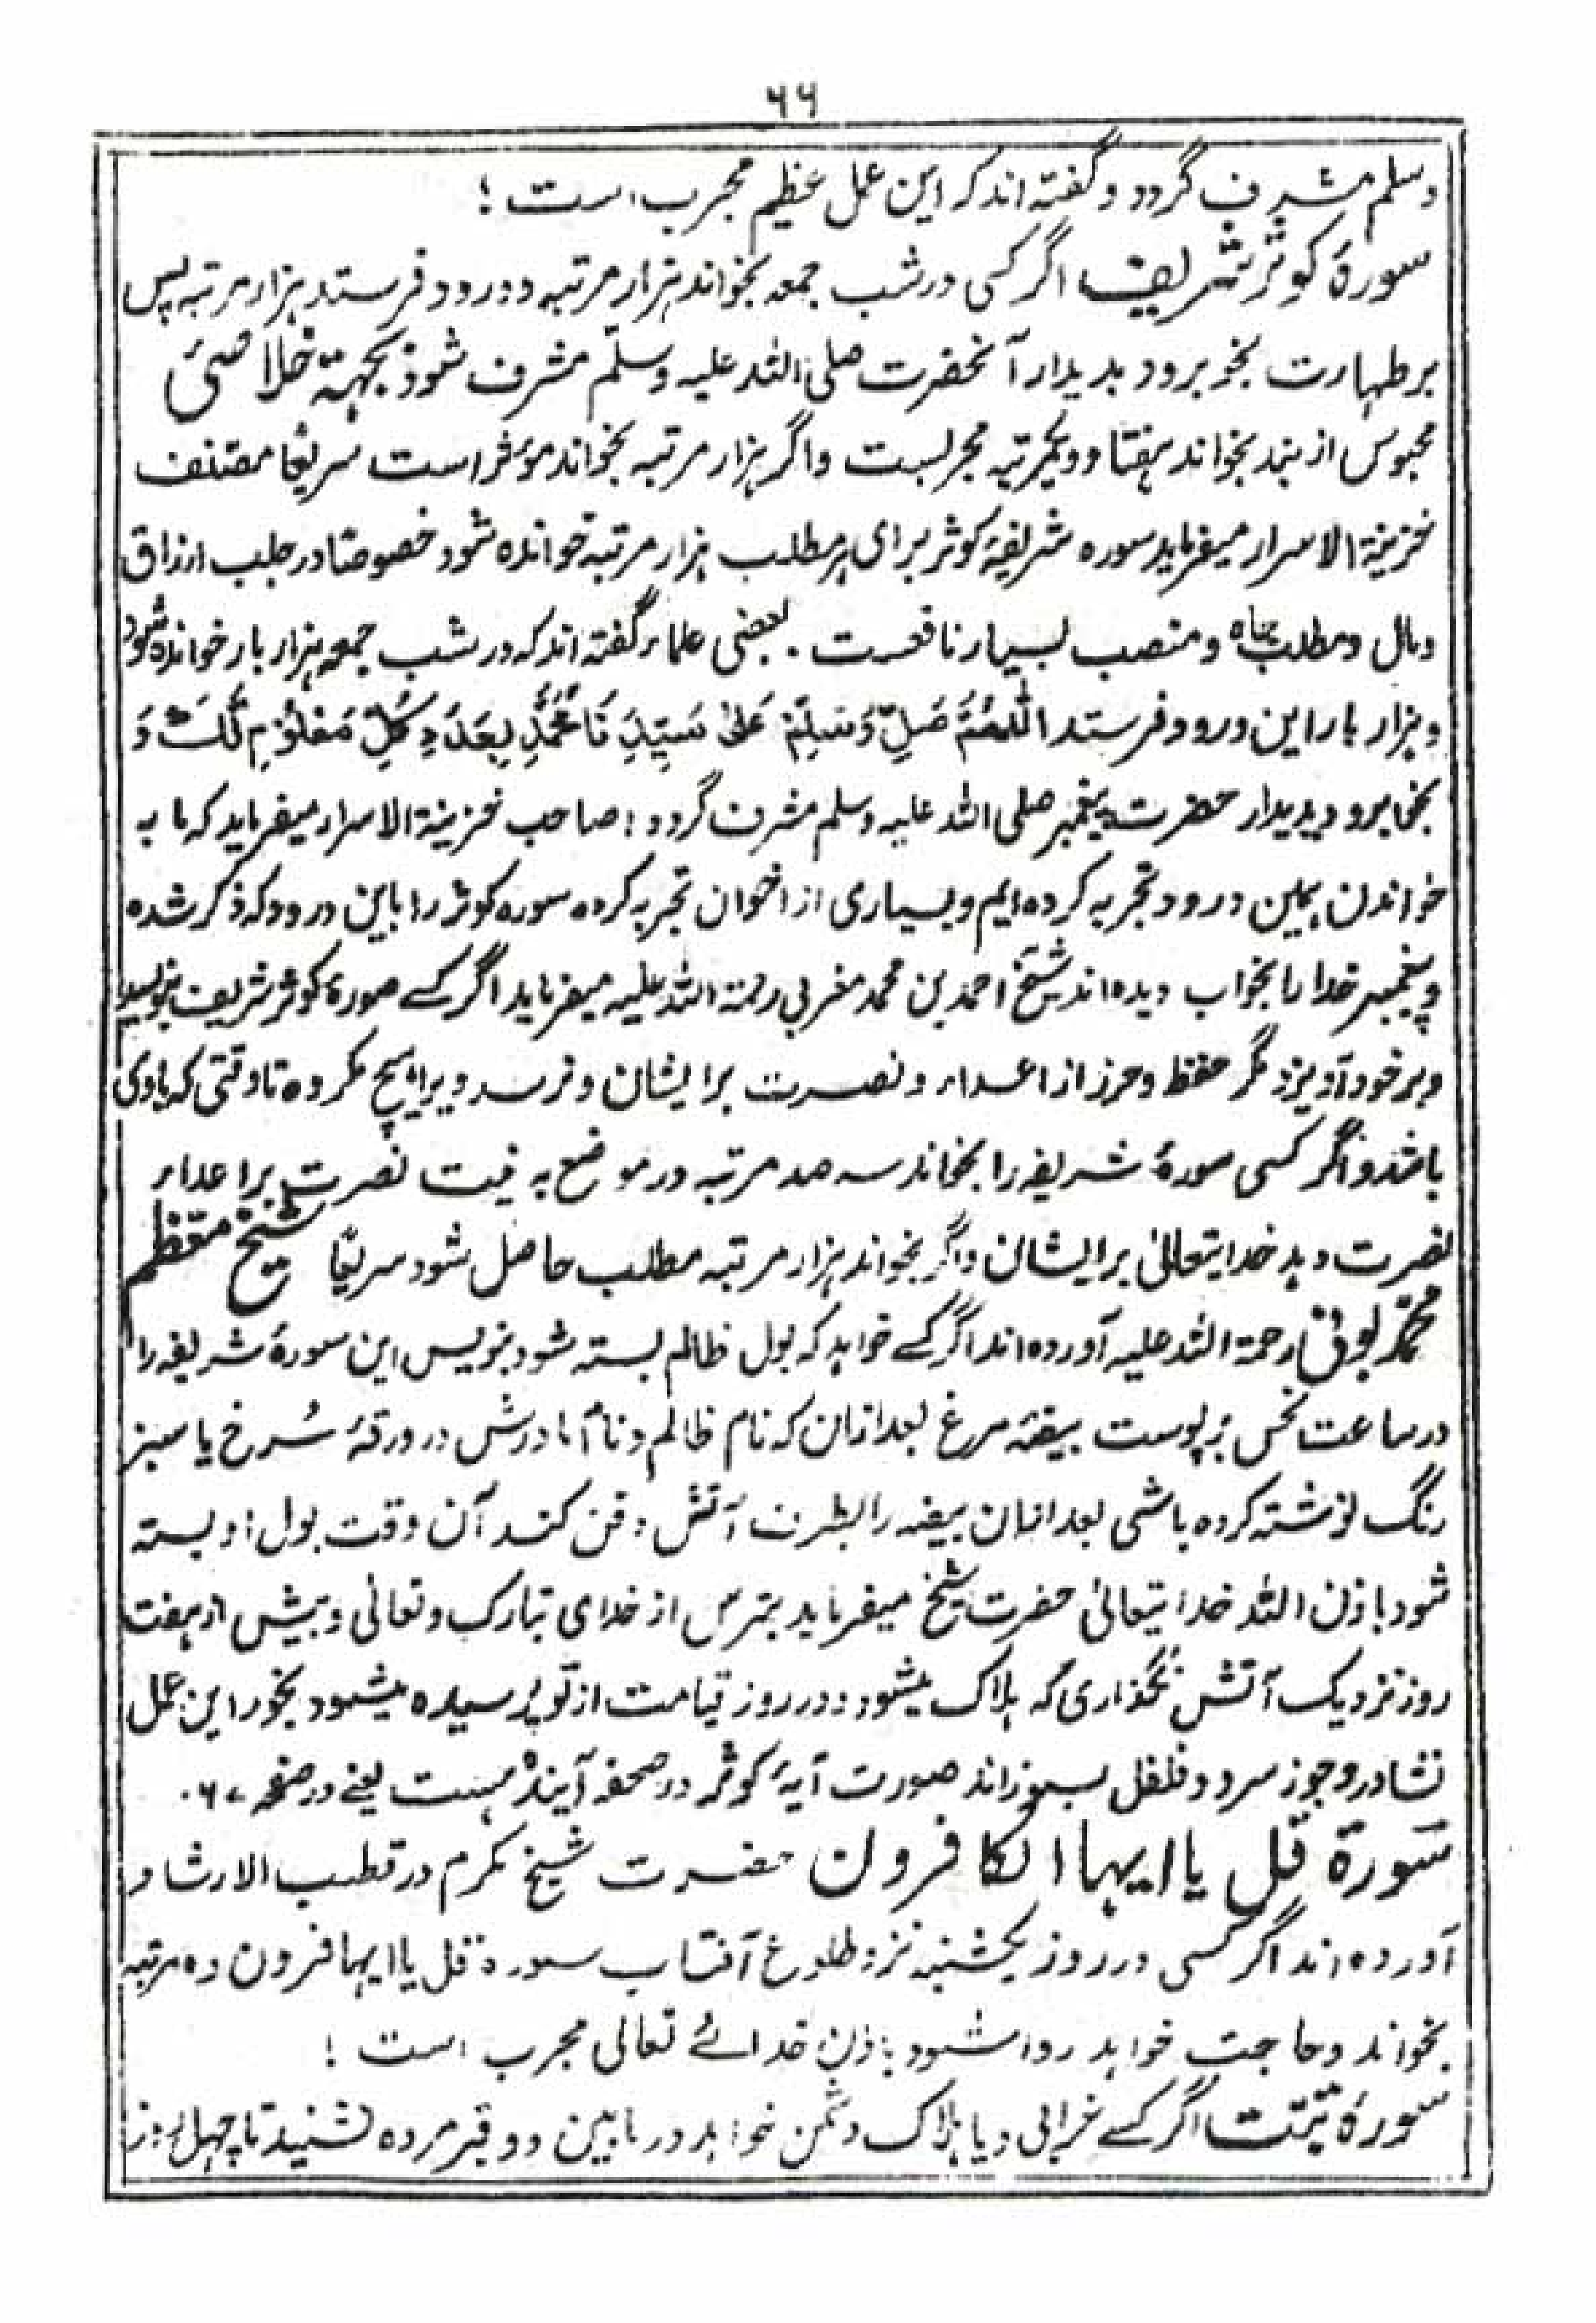 ۶۶
وسلم مشرف گردد و گفته اند که این عمل عظیم مجرب است ؛
سورۀ کوثر شریف اگر کسی در شب جمعه بخواند هزار مرتبه و درود فرستد هزار مرتبه پس
بر طهارت بخو برود بدیدار آنحضرت صلی الله علیه وسلّم مشرف شود بجهة خلاصئ
محبوس از بند بخواند هفتاد ویکمرتبه مجربست واگر هزار مرتبه بخواند مؤثر است سریعًا مصنف
خزینة الاسرار میفرماید سوره شریفۀ کوثر برای هر مطلب هزار مرتبه خوانده شود خصوصًا در جلب ارزاق
ومال ومطلب جاه ومنصب بسیار نافعست . بعضی علماء گفته اند که در شب جمعه هزار بار خوانده شود
وهزار بار این درود فرستد اَللّٰهُمَّ صَلِّ وَسَلِّمْ عَلیٰ سَیِّدِنَا مُحَمَّدٍ بِعَدَدِ کُلِّ مَعْلُوْمٍ لَّکَ وَ
بخابرود بدیدار حضرت پیغمبر صلی الله علیه وسلم مشرف گردد ؛ صاحب خزینة الاسرار میفرماید که ما به
خواندن همین درود تجربه کرده ایم و بسیاری از اخوان تجربه کرده سوره کوثر را باین درود که ذکر شده
و پیغمبر خدا را بخواب دیده اند شیخ احمد بن محمد مغربی رحمة الله علیه میفرماید اگر کسے صورۀ کوثر شریف بنویسد
و بر خود آویزد مگر حفظ و حرز از اعداء و نصرت بر ایشان و نرسد ویرا هیچ مکروه تا وقتی که باوی
باشد واگر کسی سورۀ شریفه را بخاند سه صد مرتبه در موضع به نیت نصرت بر اعداء
نصرت دهد خدایتعالی بر ایشان واگر بخواند هزار مرتبه مطلب حاصل شود سریعًا شیخ معظم
محمّد بونی رحمة الله علیه آورده اند اگر کسے خواهد که بول ظالم بسته شود بنویس این سورۀ شریفه را
در ساعت نحس بر پوست بیضۀ مرغ بعد ازان که نام ظالم و نام مادرش در ورقۀ سُرخ یا سبز
رنگ نوشته کرده باشی بعد ازان بیضه را بطرف آتش دفن کند آن وقت بول او بسته
شود باذن الله خدایتعالی حضرت شیخ میفرماید بترس از خدای تبارک وتعالی وبیش از هفت
روز نزدیک آتش نگذاری که هلاک میشود و در روز قیامت از تو پرسیده میشود بخور این عمل
نشادر و جوز سرد و فلفل بسوزاند صورت آیۀ کوثر در صحفه آینده هست یعنے در صفحه ۶۷.
سورة قل یا ایها الکافرون حضرت شیخ مکرم در قطب الارشاد
آورده اند اگر کسی در روز یکشنبه نزد طلوع آفتاب سورة قل یا ایها فرون ده مرتبه
بخواند و حاجت خواهد روا شود باذن خدائے تعالی مجرب است !
سورۀ تبّت اگر کسے خرابی و یا هلاک دشمن خواهد در ما بین دو قبر مرده نشیند تا چهل روز